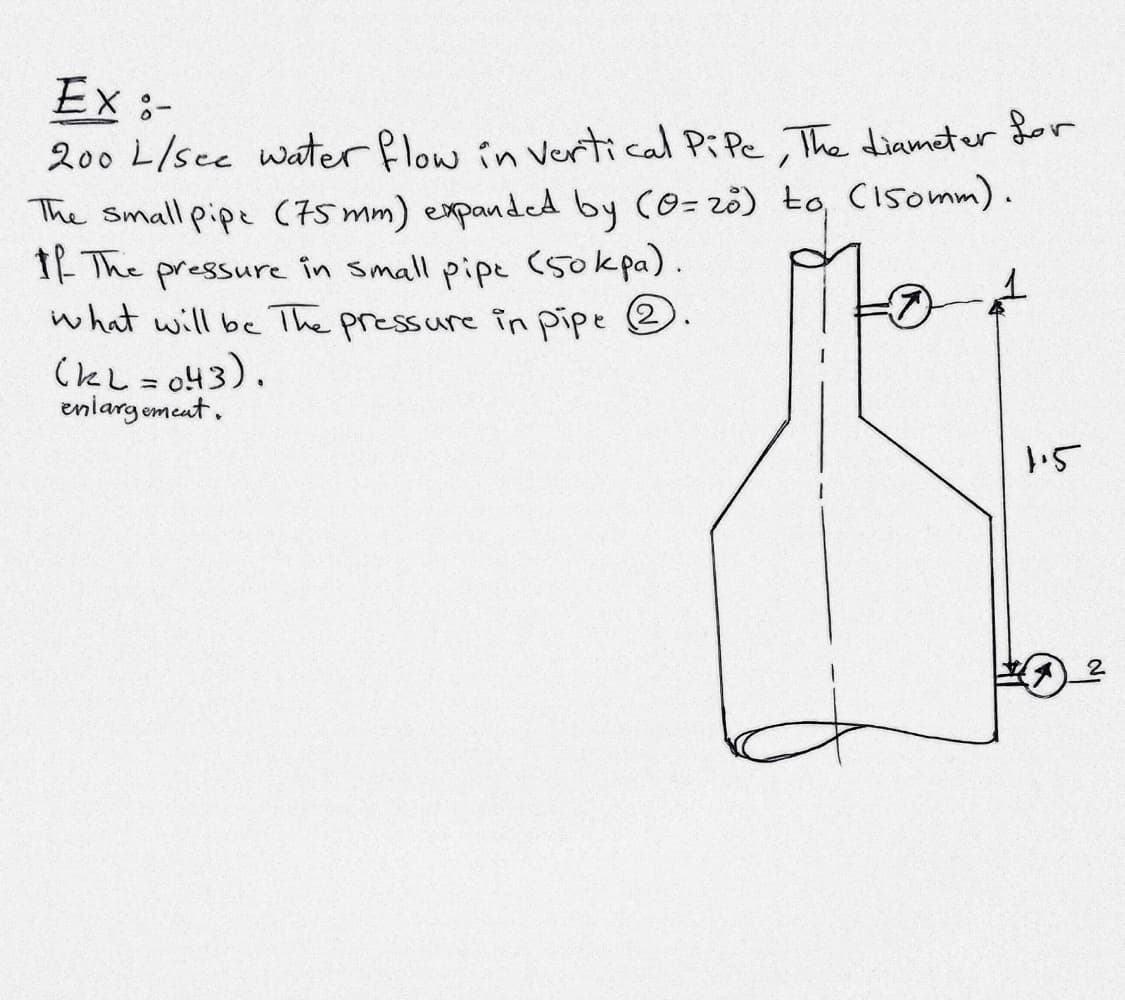 Ex :-
200 L/sec water flow in vertical PiPe, The diameter for
The small pipe (75 mm) expanded by (θ=20°) to (150mm).
If The pressure in small pipe (50 kpa).
what will be The pressure in pipe ②.
(kL = 0.43).
enlargement.
1
1.5
2